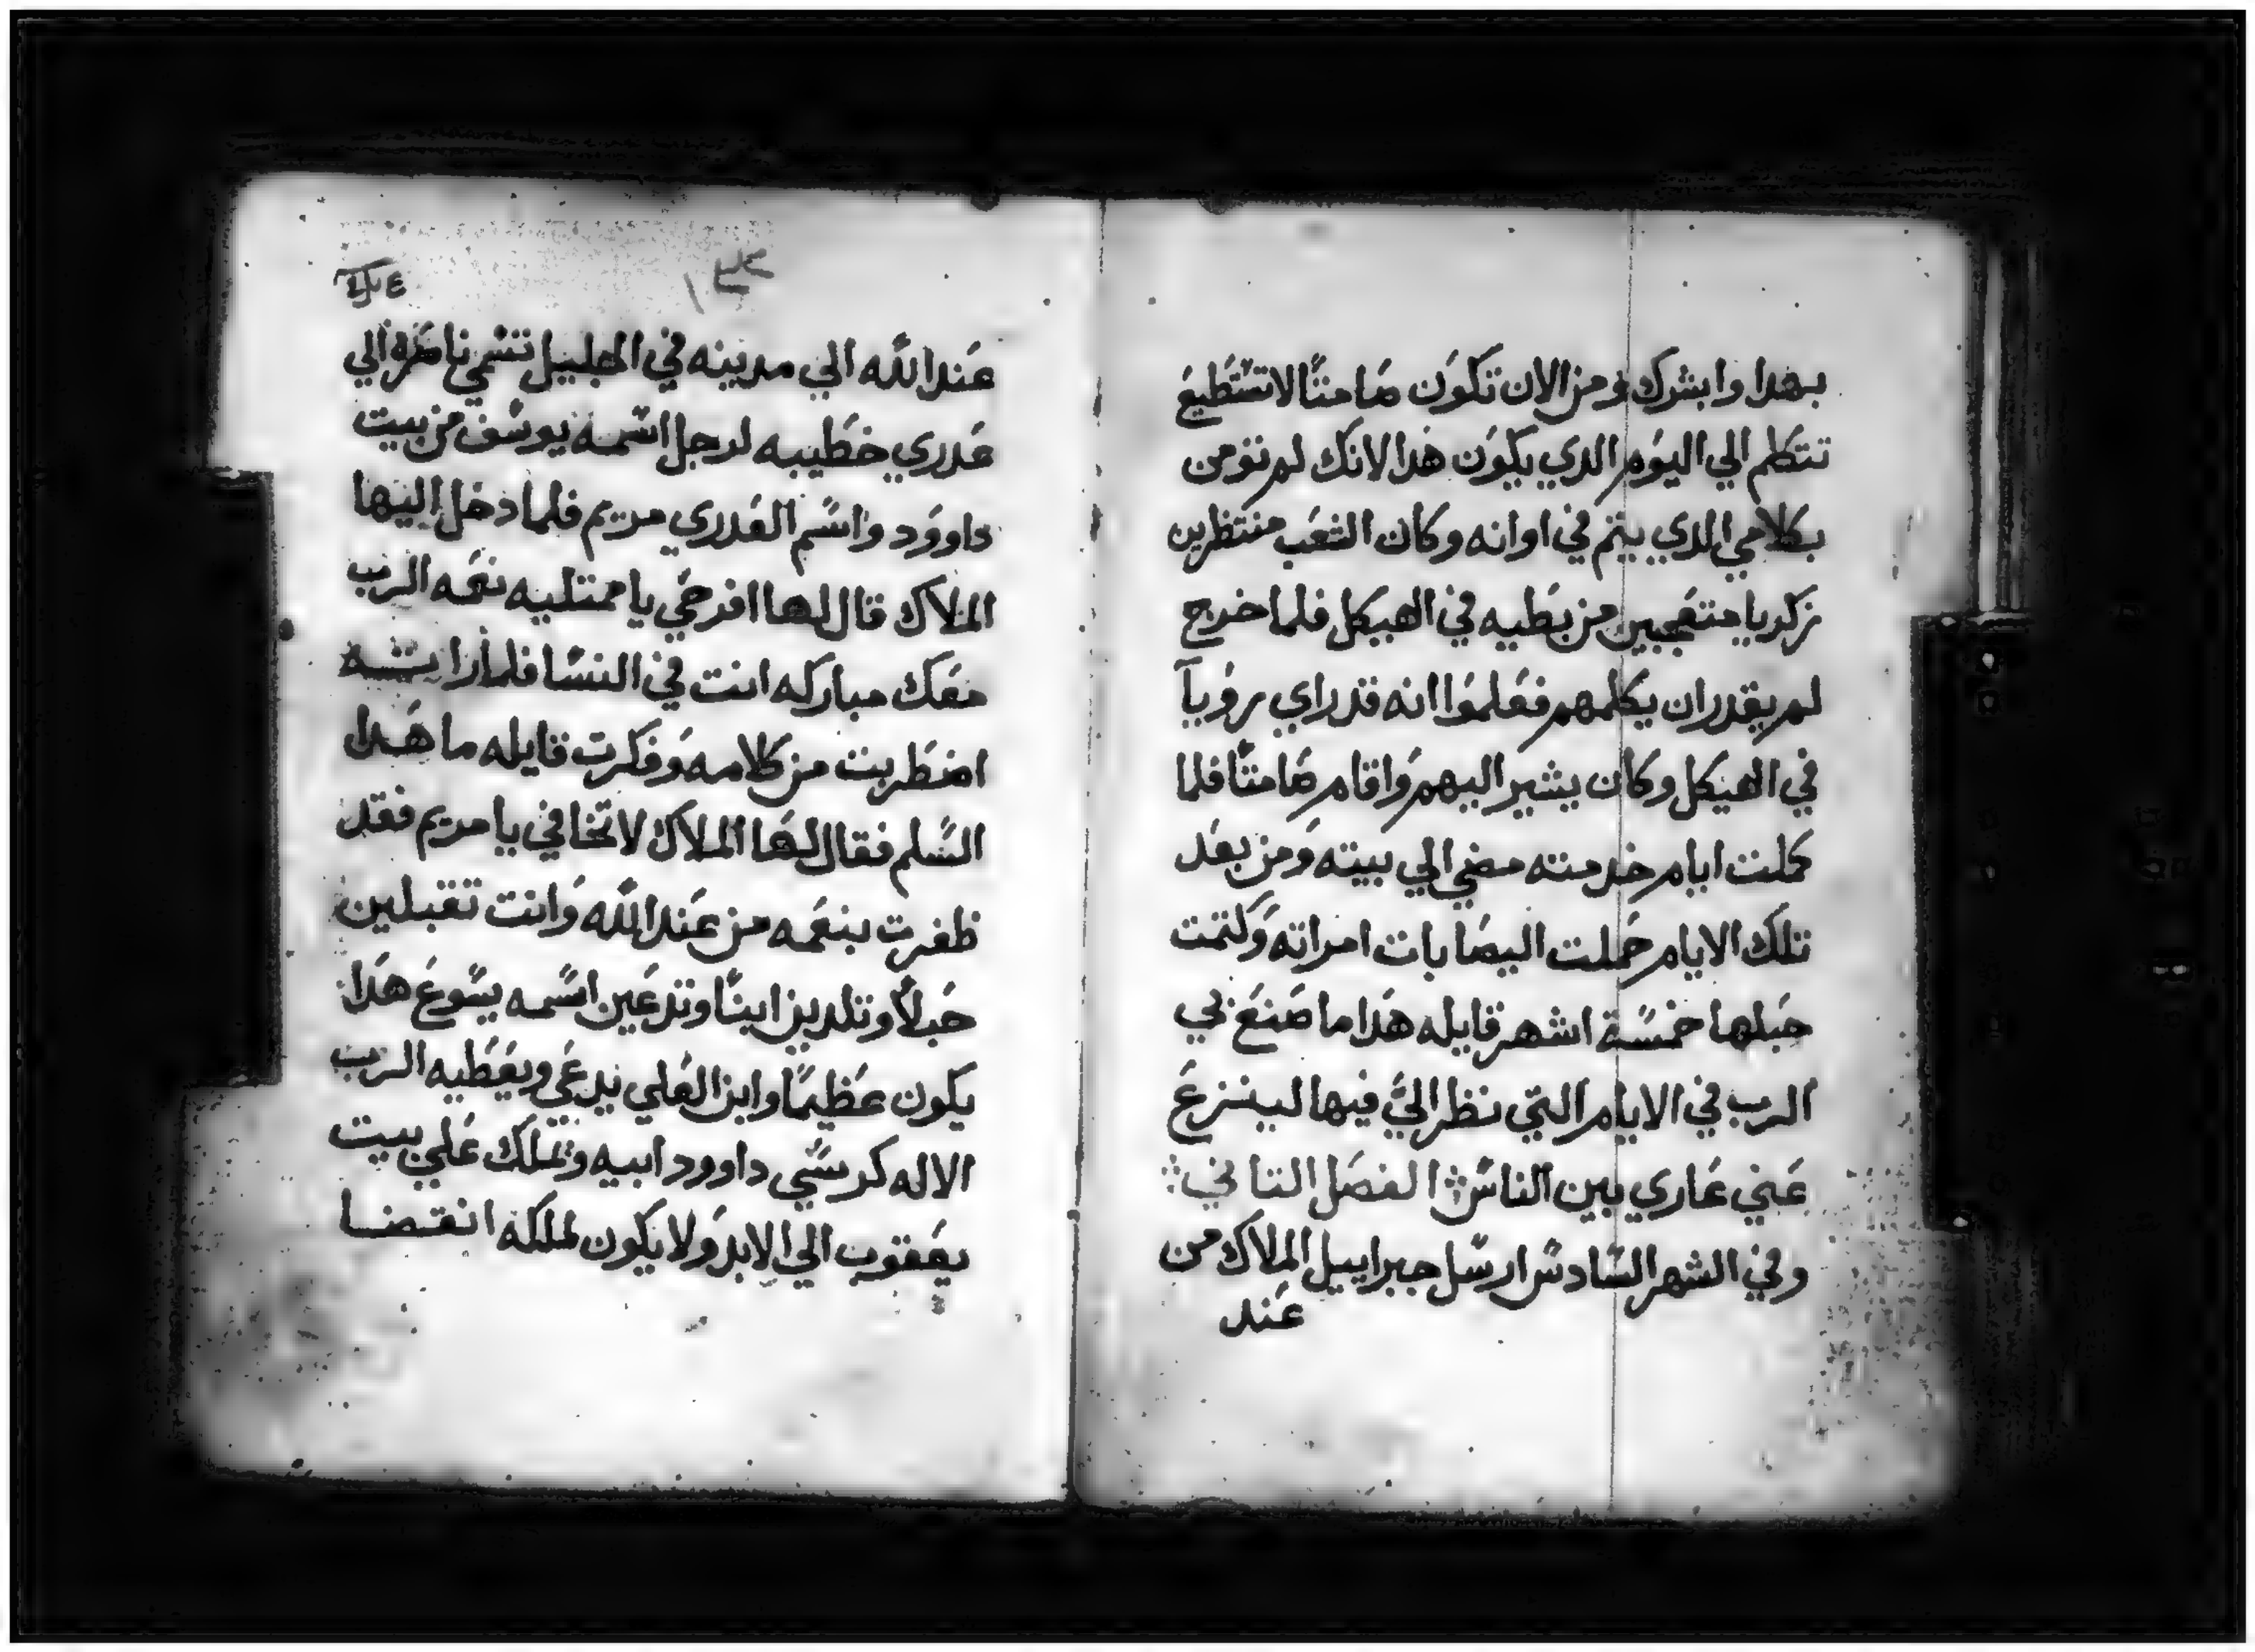 بهدا وابشرك ومن الان تكون صامتًا لاتستطيع
تتكلم الي اليوم الدي يكون هدا لانك لم تومن
بكلامي الدي يتم في اوانه وكان الشعب منتظرين
زكريا متعجبين من بطيه في الهيكل فلما خرج
لم يقدر ان يكلمهم فعلموا انه قد راي رويآ
في الهيكل وكان يشير اليهم واقام صامتًا فلما
كملت ايام خدمته مضي الي بيته ومن بعد
تلك الايام حملت اليصابات امراته وكتمت
حبلها خمسة اشهر قايله هدا ما صنع بي
الرب في الايام التي نظر اليَّ فيها لينزع
عني عاري بين الناس الفصل التاني
وفي الشهر السادس ارسل جبراييل الملاك من
عند
عند الله الي مدينه في الجليل تسمي ناصره الي
عدري خطيبه لرجل اسمه يوسف من بيت
داوود واسم العدري مريم فلما دخل اليها
الملاك قال لها افرحي يا ممتليه نعمه الرب
معك مباركه انت في النسا فلما راته
اضطربت من كلامه وفكرت قايله ما هدا
السلم فقال لها الملاك لا تخافي يا مريم فقد
ظفرت بنعمه من عند الله وانت تقبلين
حبلاً وتلدين ابنًا وتدعين اسمه يسوع هدا
يكون عظيمًا وابن العلي يدعي ويعطيه الرب
الاله كرسي داوود ابيه ويملك علي بيت
يعقوب الي الابد ولا يكون لملكه انقضا